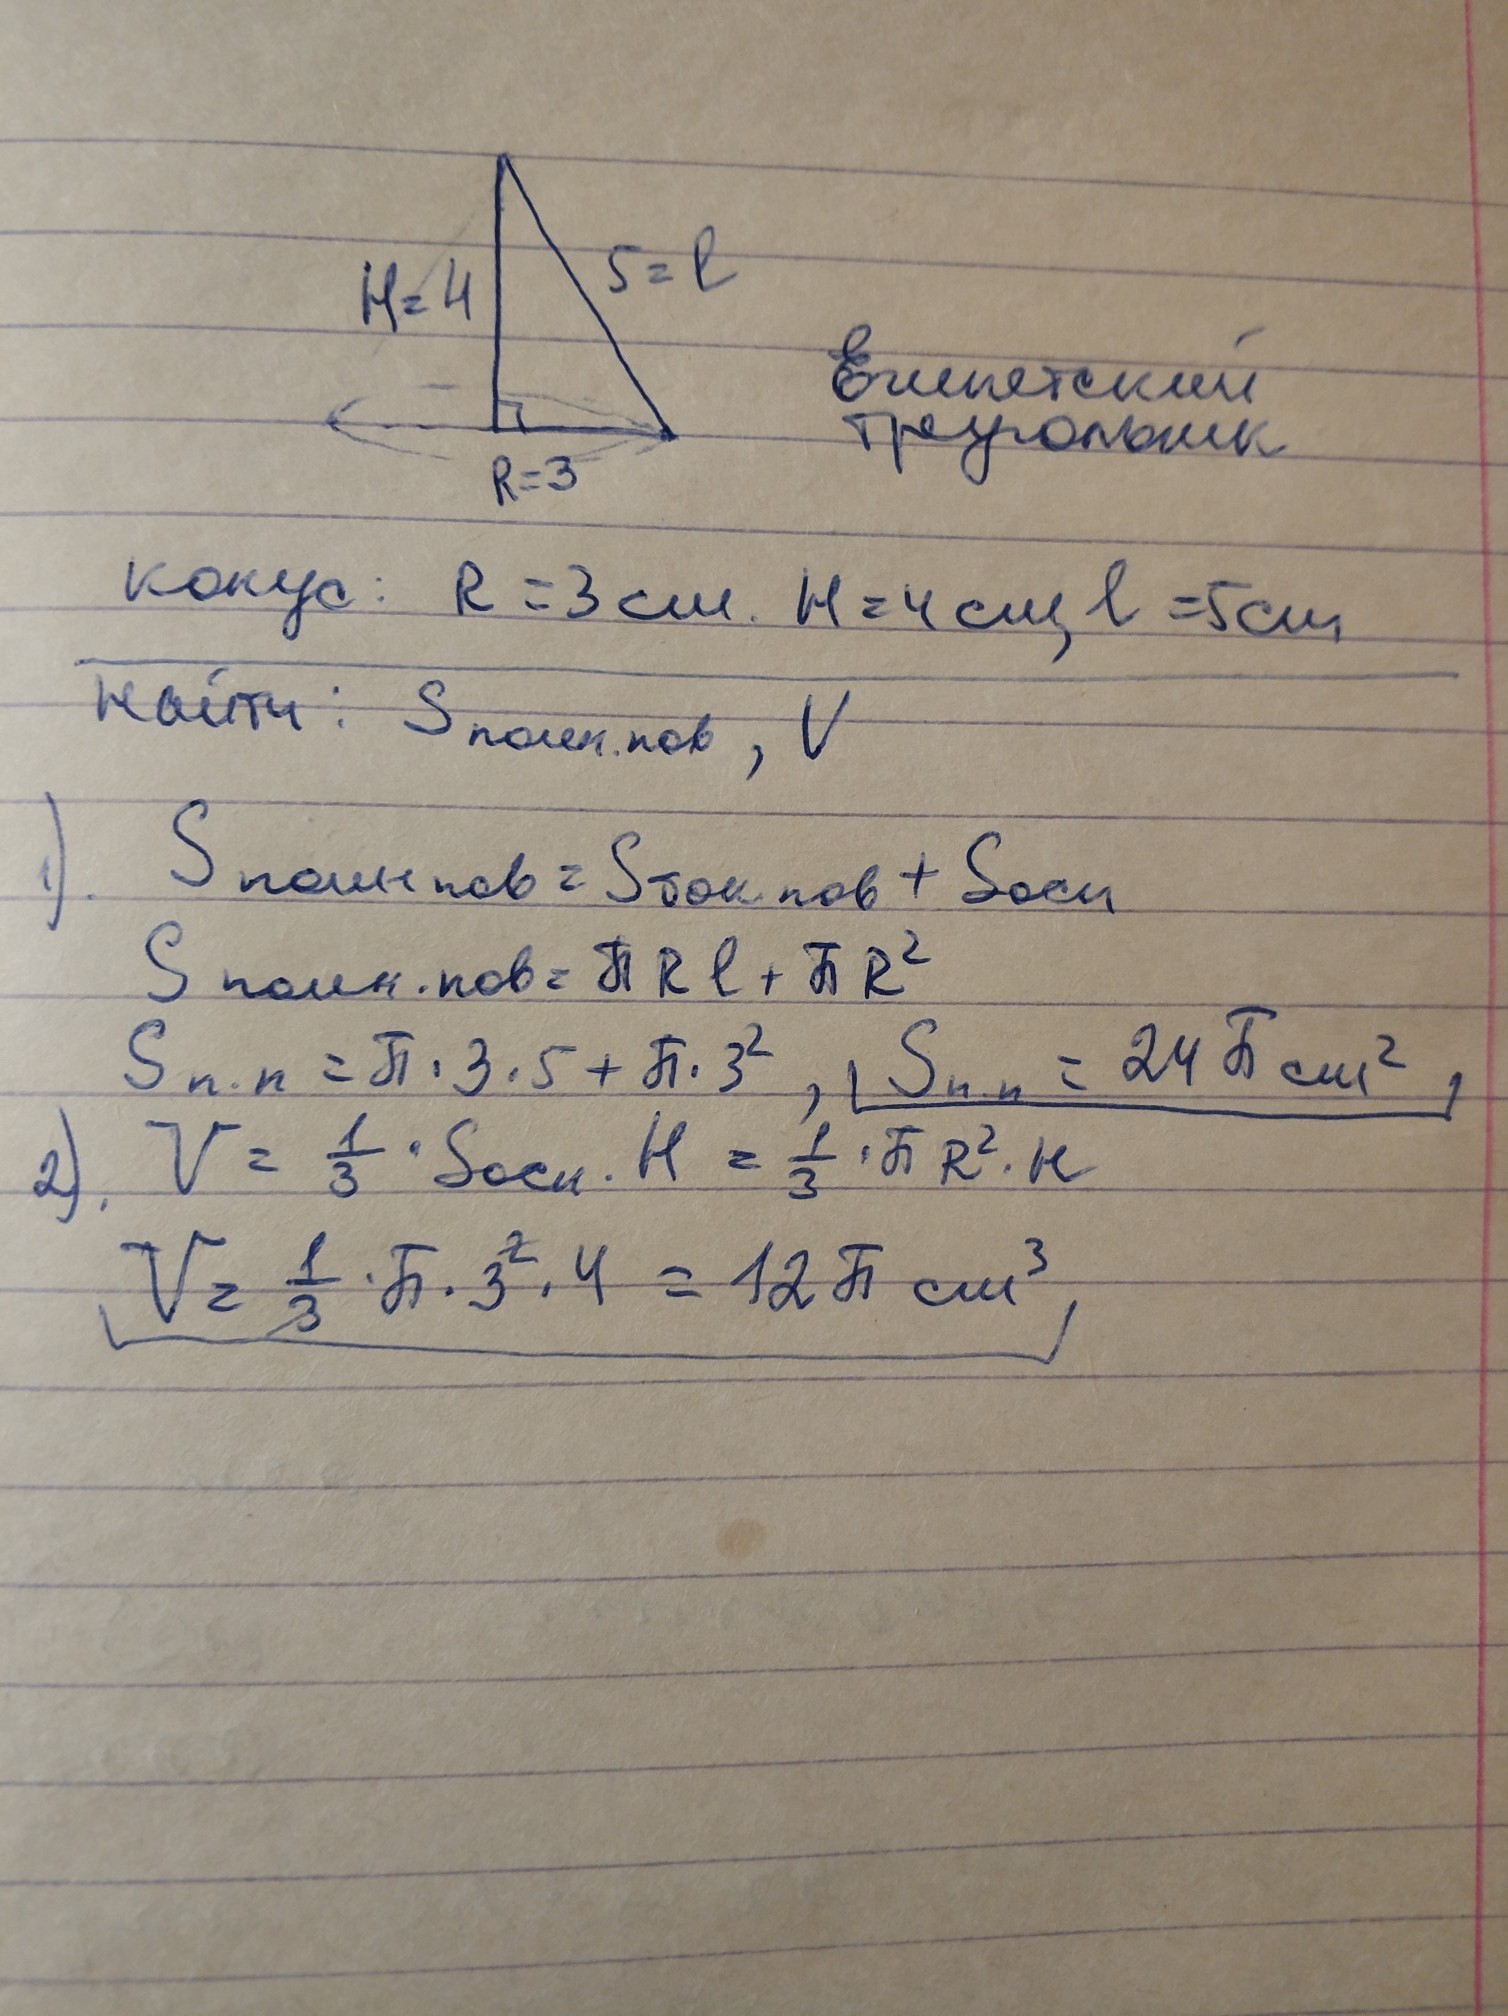 H=4
5=l
R=3
Египетский
треугольник
конус: R=3см. H=4см, l=5см
Найти: Sполн.пов, V
1). Sполн пов=Sбок.пов+Sосн
Sполн.пов=πRl+πR²
Sп.п=π·3·5+π·3², Sп.п=24π см²,
2). V=1/3·Sосн.·H=1/3·πR²·H
V=1/3·π·3²·4=12π см³,